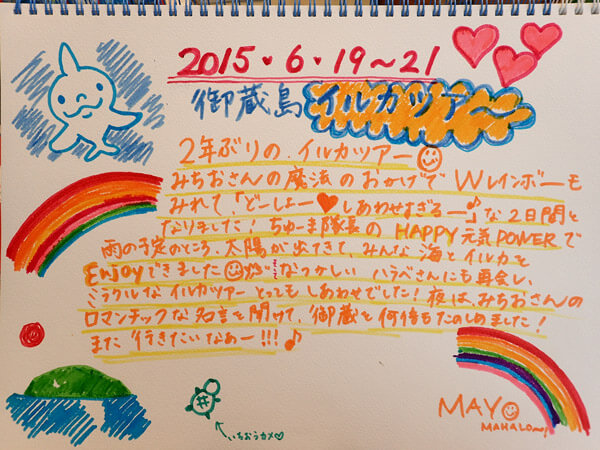 2015・6・19～21
御蔵島 イルカツアー
2年ぶりの イルカツアー
みちおさんの魔法のおかげで Wレインボーも
みれて、「どーしよー♥しあわせすぎるー♪」な2日間と
なりました! ちゅーま隊長の HAPPY 元気 POWERで
雨の予定のところ、太陽が出てきて、みんな海とイルカと
Enjoyできました なつかしい ハラペさんにも再会し、
ミラクルな イルカツアー とってもしあわせでした! 夜は、みちおさんの
ロマンチックな名言を聞けて、御蔵を何倍もたのしめました!
また行きたいなぁー!!!♪
いちおうカメ♡
MAYO
MAHALO~